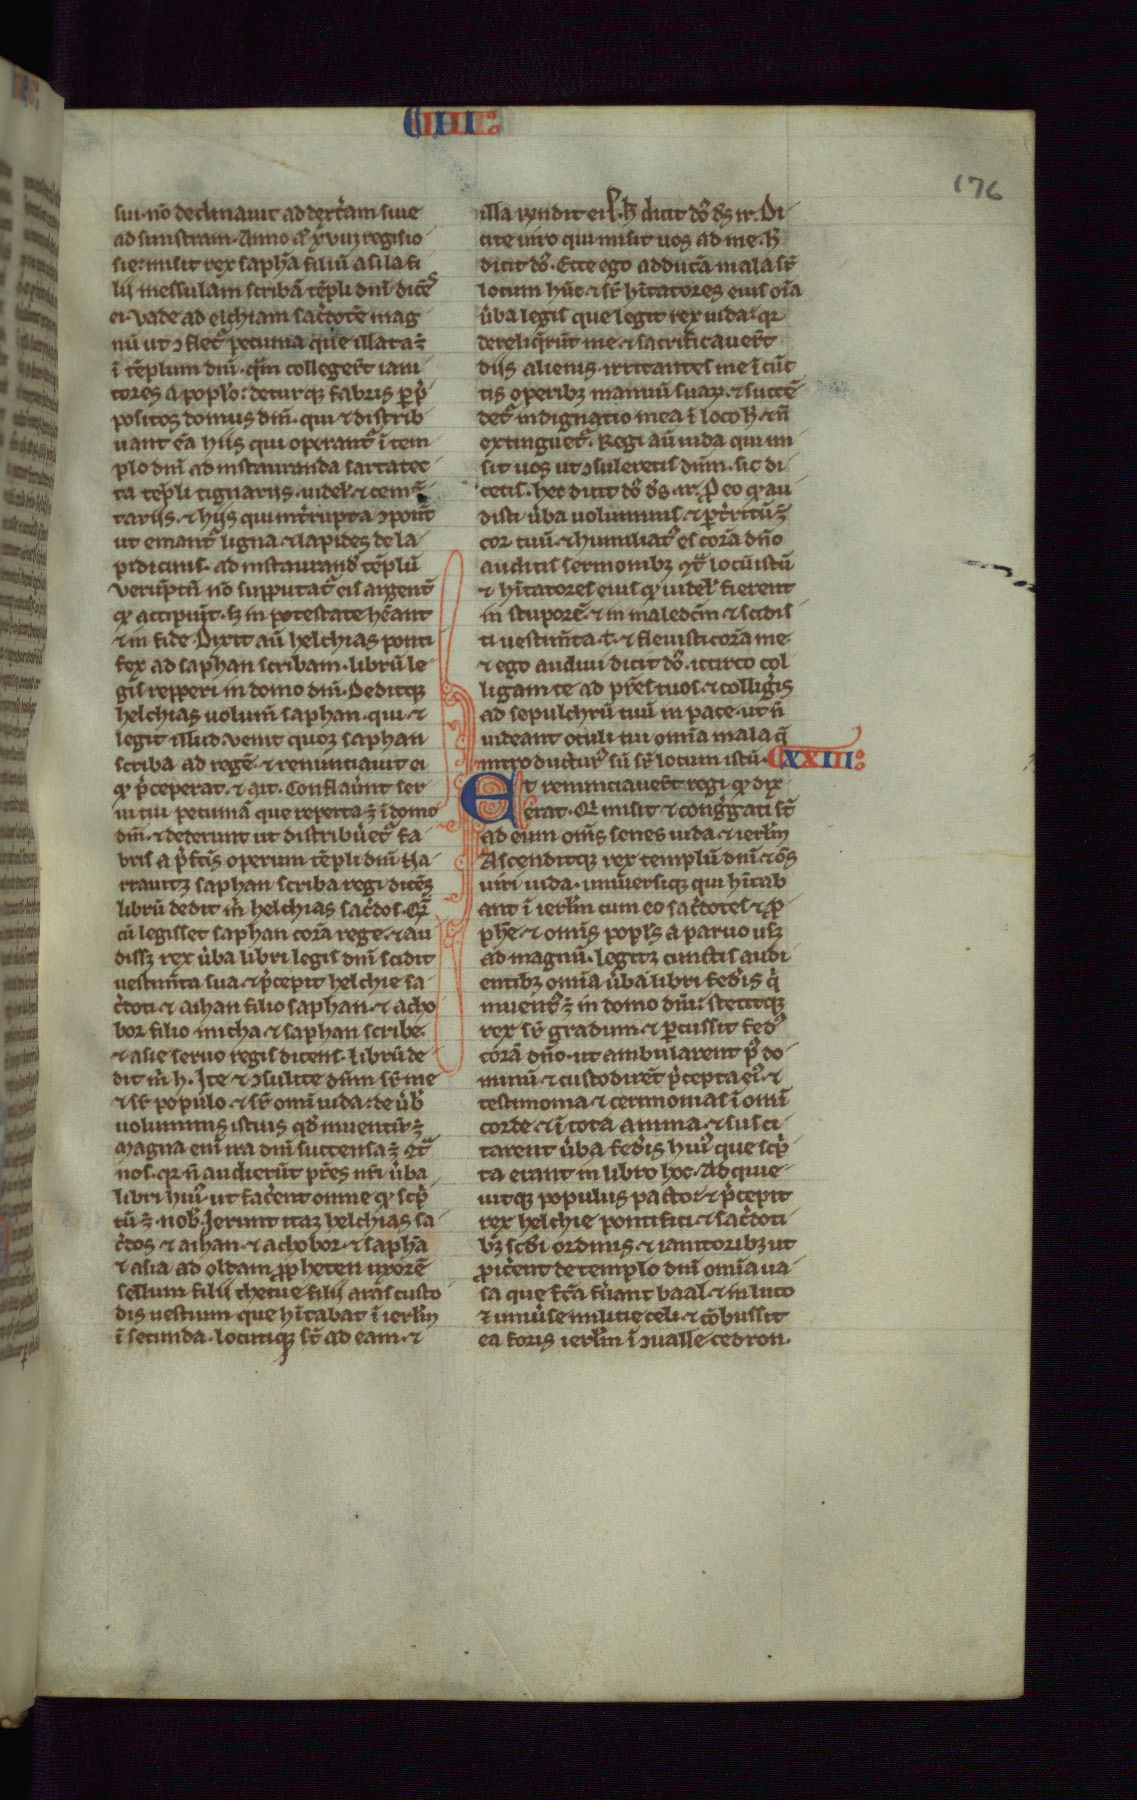 IIII
176
sui. nō declinauit ad dext̄am siue
ad sinistram. Anno aū xviij regis io
sie: misit rex saphā filiū asila fi
lij messulam scribā tēpli dn̄i dicēs
ei. Vade ad elchiam sac̄dotē mag
nū ut ꝯflet᷑ pecunia que illata ē
ī tēplum dn̄i. quā colleger̄t iani
tores a poplo: deturq; fabris p̄
positos domus dn̄i. qui ⁊ distrib
uant eā hijs qui operant᷑ ī tem
plo dn̄i ad instauranda sartatec
ta tēpli tignarijs. uidel᷑ ⁊ cemē
tarijs. ⁊ hijs qui int̄rupta ꝯponūt
ut emant᷑ ligna ⁊ lapides de la
pidicinis. ad instaurand᷑ tēplū
Verūptn̄ nō supputat᷑ eis argent̄
qd̄ accipiūt. s; in potestate hēant
⁊ in fide. Dixit aū helchias ponti
fex ad saphan scribam. librū le
gis repperi in domo dn̄i. Deditq;
helchias uolum̄ saphan. qui ⁊
legit illud. Venit quoq; saphan
scriba ad regē. ⁊ renunciauit ei
qd̄ p̄ceperat. ⁊ ait. Conflauer̄t ser
ui tui pecuniā que reperta ē ī domo
dn̄i. ⁊ dederunt ut distribuet᷑ fa
bris a p̄fctīs operum tēpli dn̄i. Na
rrauitq; saphan scriba regi dicēs
librū dedit m̄ helchias sac̄dos. Quē
cū legisset saphan corā rege. ⁊ au
diss; rex ūba libri legis dn̄i scidit
uestim̄ta sua. ⁊ p̄cepit helchie sa
c̄doti. ⁊ aihan filio saphan. ⁊ acho
bor filio micha. ⁊ saphan scribe.
⁊ asie seruo regis dicens. librū de
dit m̄ h. Ite ⁊ ꝯsulite dn̄m sr̄ me
⁊ sr̄ populo. ⁊ sr̄ omī iuda. de ūb̄
uoluminis istius qd̄ inuentū ē
Magna enī ira dn̄i succensa ē ꝯt̄
nos. qr n̄ audierūt pr̄es nr̄i ūba
libri hui᷑. ut fac̄ent omne qd̄ sc̄p
tū ē nob̄. Ierunt itaq; helchias sa
c̄dos ⁊ aihan. ⁊ achobor. ⁊ saphā
⁊ asia ad oldam ꝓpheten uxorē
sellum filij thecue filij aras custo
dis uestium. que hītabat ī ierl̄m
ī secunda. locutiq; sr̄t ad eam. ⁊
illa rn̄dit eis. h̄ dicit dō d̄s isr̄. Di
cite uiro qui misit uos ad me. h̄
dicit dō. Ecce ego adducā mala sr̄
locum hūc ⁊ sr̄ hītatores eius oīa
ūba legis que legit rex iuda. qr
dereliqr̄unt me. ⁊ sacrificauer̄t
diis alienis. irritantes me ī cūc
tis operib; manuū suaꝝ. ⁊ succē
det᷑ indignatio mea ī loco h. ⁊ n̄
extinguet᷑. Regi aū iuda qui mi
sit uos ut ꝯsuleretis dn̄m. sic di
cetis. hec dicit dō d̄s isr̄. P eo qd̄ au
disti ūba uoluminis. ⁊ ꝑt̄ritū ē
cor tuū. ⁊ humiliat᷑ es corā dn̄o
auditis sermonib; ꝯt̄ locū istū
⁊ hītatores eius qd̄ uidel᷑ fierent
in stuporē. ⁊ in maledc̄m. ⁊ scidis
ti uestim̄ta t. ⁊ fleuisti corā me
⁊ ego audiui dicit dō. iccirco col
ligam te ad pr̄es tuos. ⁊ colliḡis
ad sepulchrū tuū in pace. ut n̄
uideant oculi tui omīa mala q̄
introductur᷑ sū sr̄ locum istū. XXIII
Et renunciauer̄t regi qd̄ dix
erat. Qi misit ⁊ conḡgati sr̄t
ad eum omēs senes iuda ⁊ ierl̄m
Ascenditq; rex templū dn̄i. ⁊ oēs
uiri iuda. uniuersiq; qui hītab
ant ī ierl̄m cum eo sac̄dotes ⁊ ꝓ
phe. ⁊ omīs popls a paruo usq;
ad magnū. legitq; cunctis audi
entib; omīa ūba libri fed̄is q̄
inuent᷑ ē in domo dn̄i. stetitq;
rex sr̄ gradum. ⁊ ꝑcussit fed᷑
corā dn̄o. ut ambularent p᷑ do
minū. ⁊ custodirēt p̄cepta ei᷑. ⁊
testimonia. ⁊ cerimonias ī omī
corde. ⁊ ī tota anima. ⁊ susci
tarent ūba fed̄is hui᷑ que sc̄p
ta erant in libro hoc. Adquie
uitq; populus pacto. ⁊ p̄cepit
rex helchie pontifici. ⁊ sac̄doti
b; scd̄i ordinis. ⁊ ianitorib; ut
ꝓic̄ent de templo dn̄i omīa ua
sa que fcā fūant baal. ⁊ in luco
⁊ uniūse militie celi. ⁊ cōbussit
ea foris ierl̄m ī ꝯualle cedron.